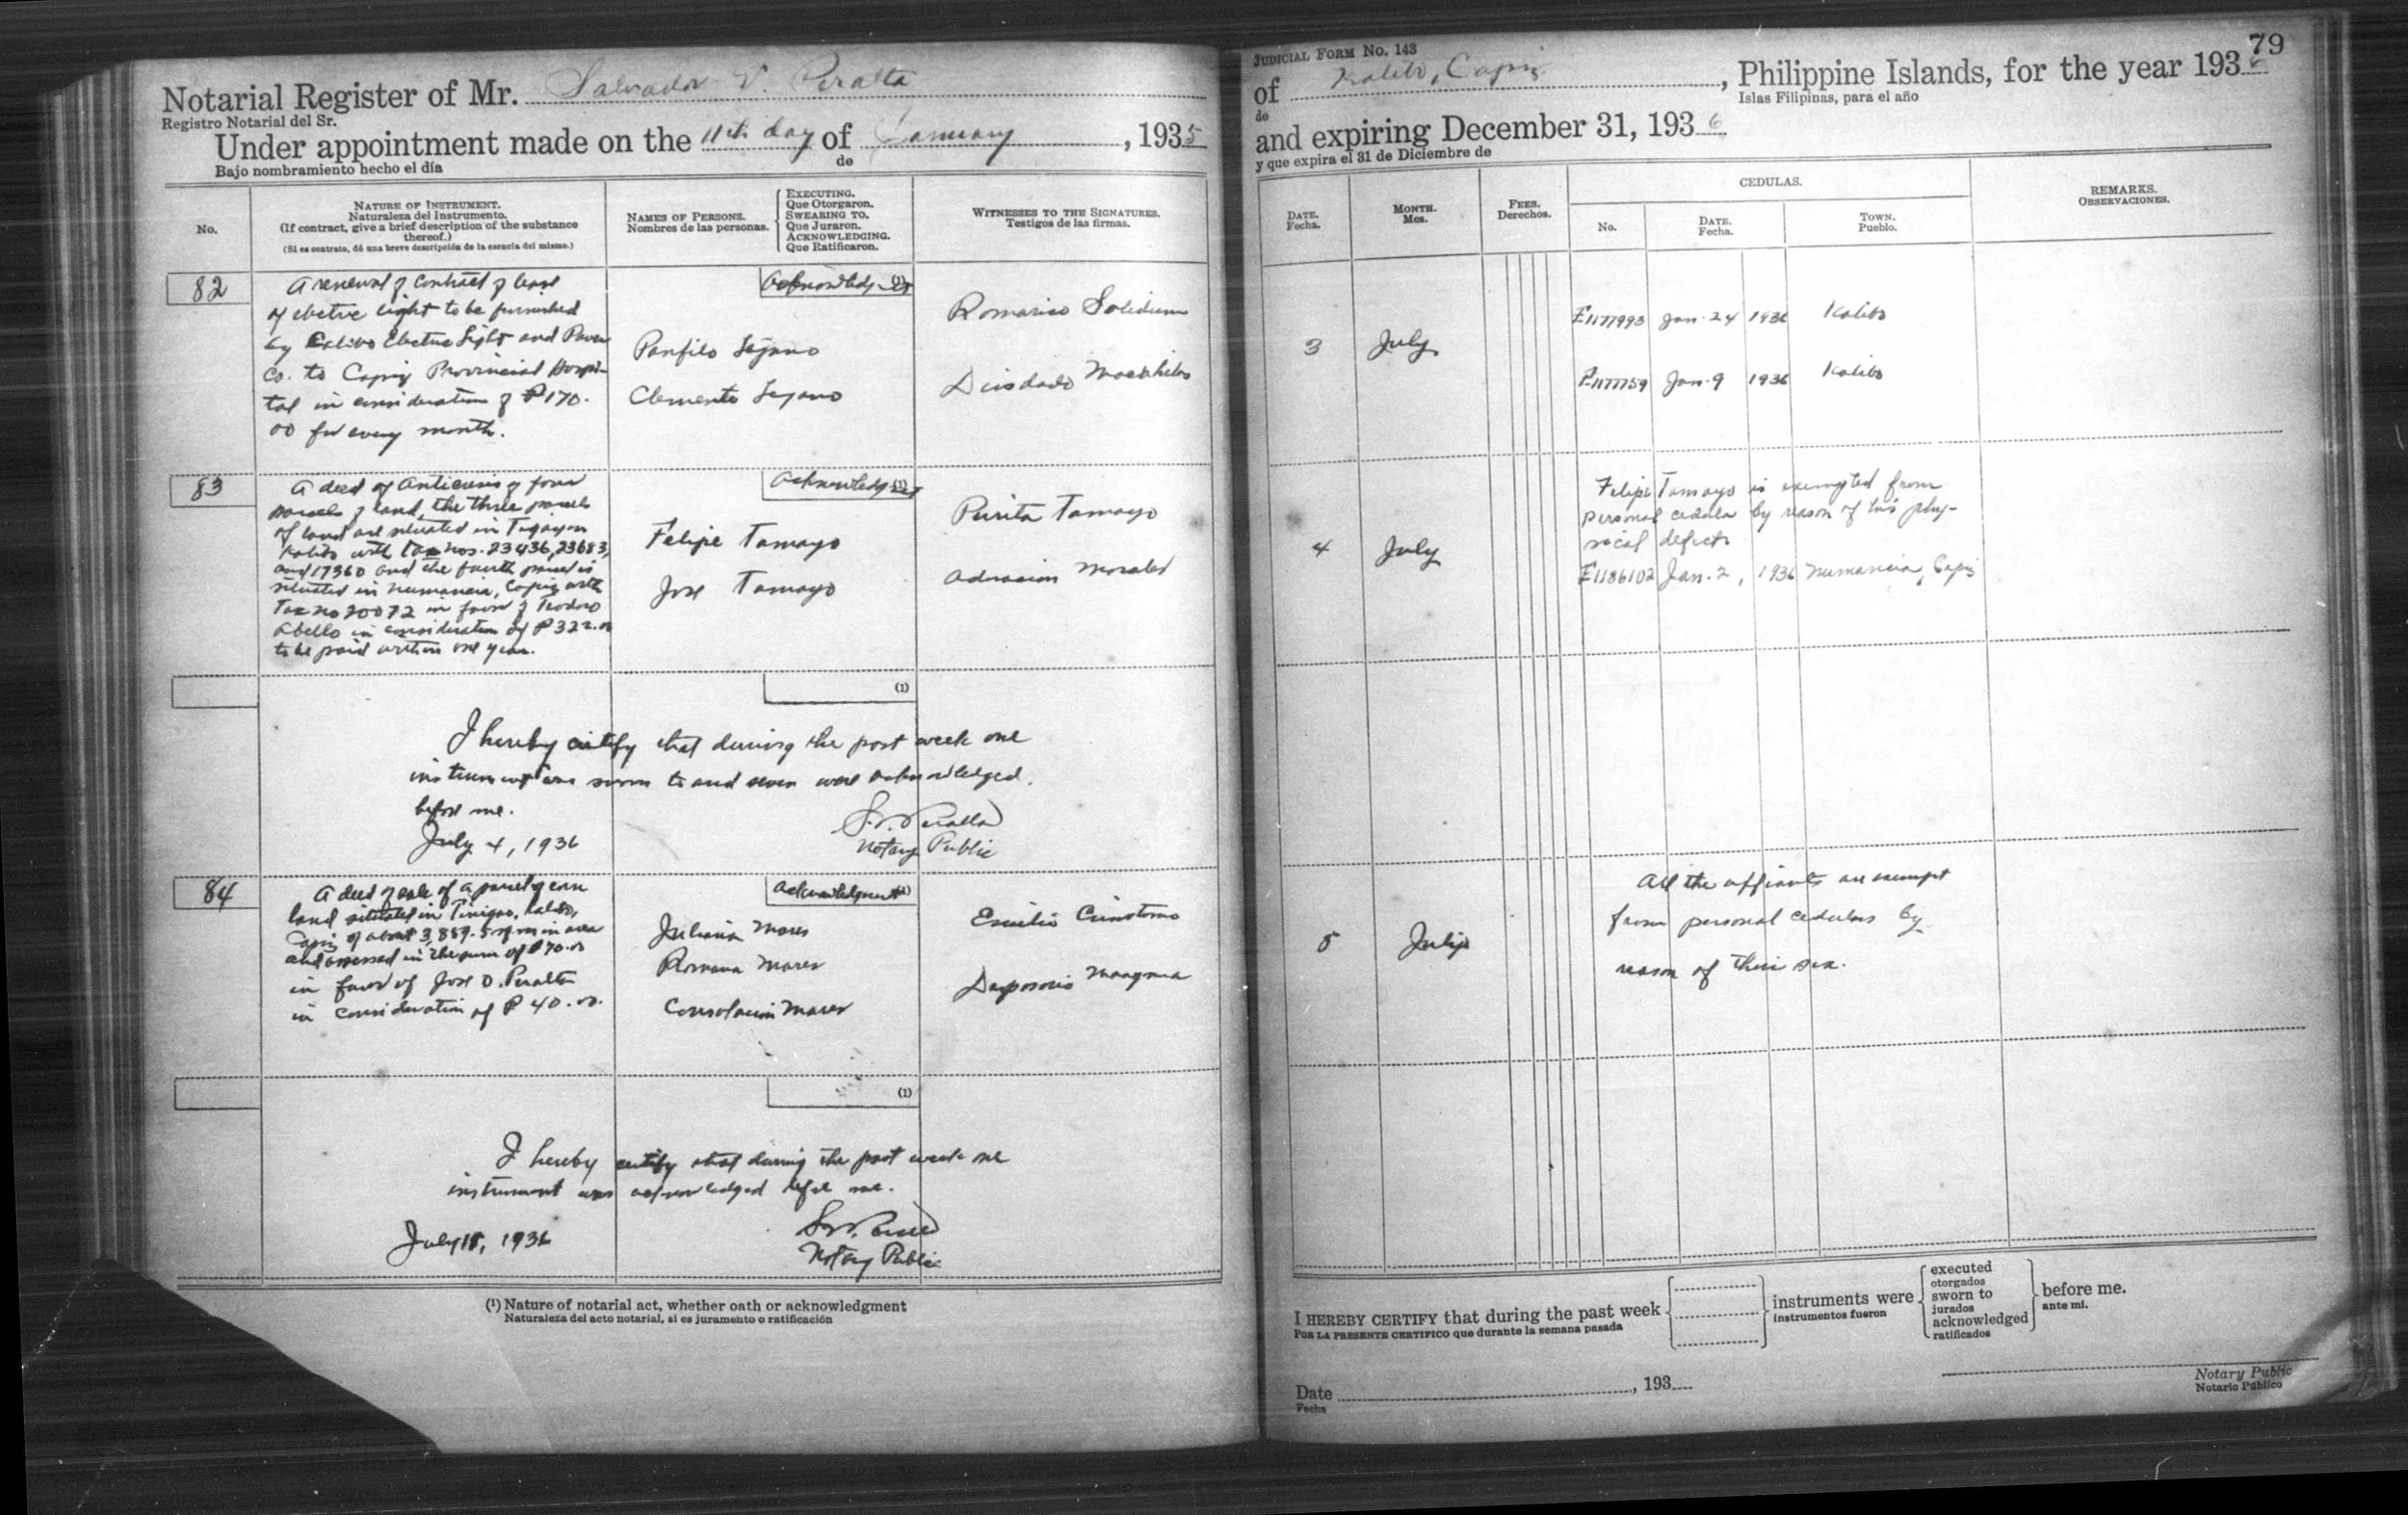 Notarial Register of Mr. Salvador V. Peralta
Registro Notarial del Sr.
Under appointment made on the 11th day of January, 1935
Bajo nombramiento hecho el día de
No.
NATURE OF INSTRUMENT.
Naturaleza del Instrumento.
(If contract, give a brief description of the substance
thereof.)
(Si es contrato, dé una breve descripción de la esencia del mismo.)
NAMES OF PERSONS.
Nombres de las personas.
EXECUTING.
Que Otorgaron.
SWEARING TO.
Que Juraron.
ACKNOWLEDGING.
Que Ratificaron.
WITNESSES TO THE SIGNATURES.
Testigos de las firmas.
82
A renewal of contract of lease
of electric light to be furnished
by Kalibo Electric Light and Power
Co. to Capiz Provincial Hospi-
tal in consideration of ₱170.
00 for every month.
(1)
Panfilo
Clemente
Romarico Solidum
Diosdado
83
A deed of Anticresis of four
parcels of land, the three parcels
of land are situated in Tagayon
Kalibo with tax nos. 23436, 23683,
and 17360 and the fourth parcel is
situated in Numancia, Capiz with
Tax no 20072 in favor of Teodoro
Abello in consideration of ₱322.00
to be paid within one year.
(1)
Felipe Tamayo
Jose Tamayo
Purita Tamayo
Morales
(1)
I hereby certify that during the past week one
instrument was sworn to and seven were acknowledged
before me.
July 4, 1936
S. V. Peralta
Notary Public
84
A deed of sale of a parcel of corn
land situated in Tinigao, Kalibo,
Capiz of about 3,889.5 sq. m in area
and assessed in the sum of ₱70.00
in favor of Jose D. Peralta
in consideration of ₱40.00.
Acknowledgment (1)
Juliana Mares
Romana Mares
Consolacion Mares
Emilio
(1)
I hereby certify that during the past week one
instrument was acknowledged before me.
July 11, 1936
Notary Public
(1) Nature of notarial act, whether oath or acknowledgment
Naturaleza del acto notarial, si es juramento o ratificación
JUDICIAL FORM No. 143
79
of Kalibo, Capiz, Philippine Islands, for the year 1936
de Islas Filipinas, para el año
and expiring December 31, 1936
y que expira el 31 de Diciembre de
DATE.
Fecha.
MONTH.
Mes.
FEES.
Derechos.
CEDULAS.
No.
DATE.
Fecha.
TOWN.
Pueblo.
REMARKS.
OBSERVACIONES.
3 July
F1177993 Jan. 24 1936 Kalibo
F1177759 Jan. 9 1936 Kalibo
4 July
Felipe Tamayo is exempted from
personal cedula by reason of his phy-
sical defect.
F1186102 Jan. 2, 1936 Numancia, Capiz
5 July
All the affiants are exempt
from personal cedulas by
reason of their sex.
I HEREBY CERTIFY that during the past week
POR LA PRESENTE CERTIFICO que durante la semana pasada
instruments were
instrumentos fueron
executed
otorgados
sworn to
jurados
acknowledged
ratificados
before me.
ante mí.
Date , 193
Fecha
Notary Public
Notario Público